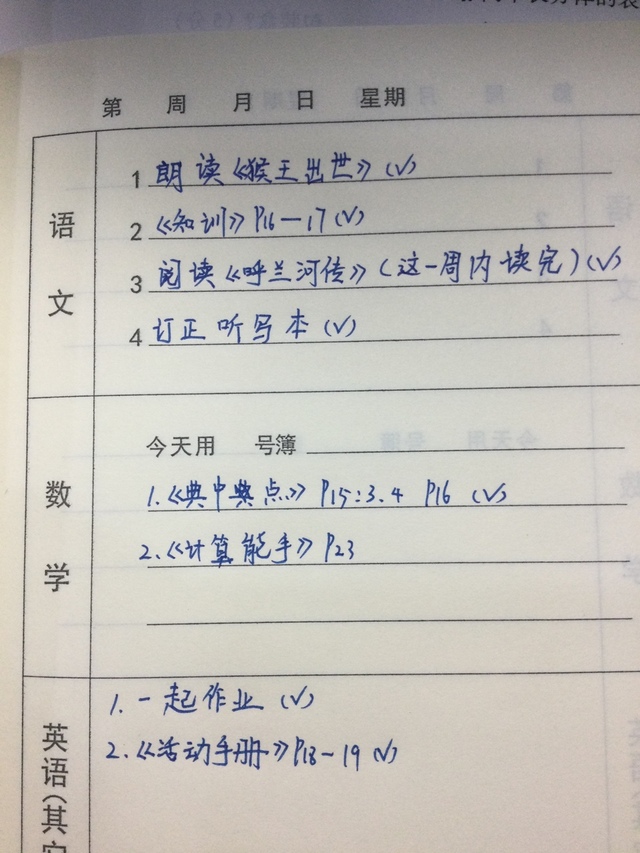 第 周 月 日 星期
语文
1 朗读《猴王出世》(√)
2 《知训》P16—17(√)
3 阅读《呼兰河传》(这一周内读完)(√)
4 订正听写本(√)
数学
今天用 号簿
1.《典中典点》P15:3.4 P16 (√)
2.《计算能手》P23
英语(其它
1.一起作业 (√)
2.《活动手册》P18-19 (√)